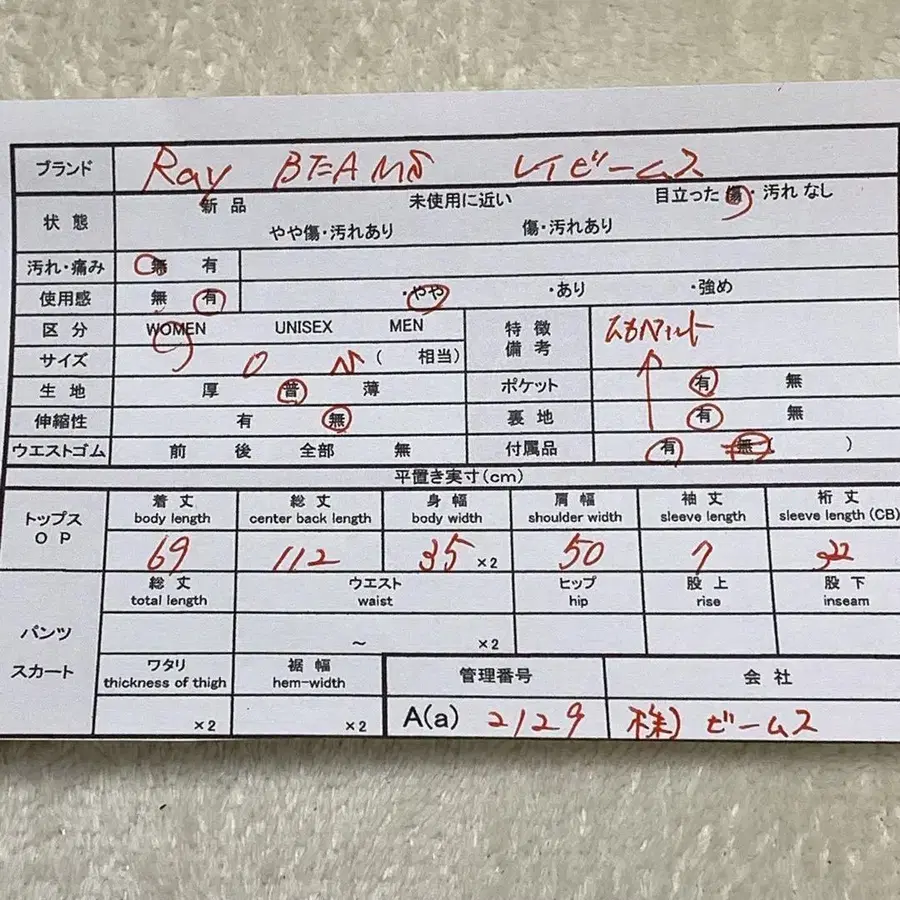 ブランド Ray BEAMS レイビームス
状態 新品 未使用に近い 目立った傷・汚れなし
やや傷・汚れあり 傷・汚れあり
汚れ・痛み 無 有
使用感 無 有 ・やや ・あり ・強め
区分 WOMEN UNISEX MEN 特徴
備考
サイズ 0 (相当)
生地 厚 普 薄 ポケット 有 無
伸縮性 有 無 裏地 有 無
ウエストゴム 前 後 全部 無 付属品 有 無( )
平置き実寸(cm)
トップス
OP
着丈 総丈 身幅 肩幅 袖丈 裄丈
body length center back length body width shoulder width sleeve length sleeve length (CB)
69 112 35 ×2 50 7 32
パンツ
スカート
総丈 ウエスト ヒップ 股上 股下
total length waist hip rise inseam
～ ×2
ワタリ 裾幅 管理番号 会社
thickness of thigh hem-width
×2 ×2 A(a) 2129 株) ビームス